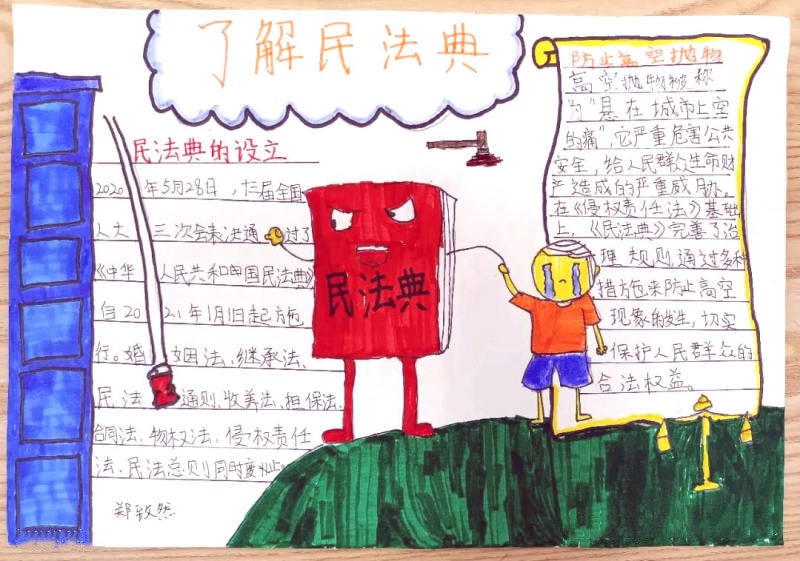 了解民法典
民法典的设立
2020年5月28日，十三届全国
人大三次会表决通过了
《中华人民共和国民法典》
自2021年1月1日起施
行。婚姻法、继承法、
民法通则、收养法、担保法、
合同法、物权法、侵权责任
法、民法总则同时废止。
郑致然
民法典
防止高空抛物
高空抛物被称
为“县在城市上空
的痛”，它严重危害公共
安全，给人民群众生命财
产造成的严重威胁。
在《侵权责任法》基础
上，《民法典》完善了治
理规则，通过多种
措施来防止高空
现象的发生，切实
保护人民群众的
合法权益。